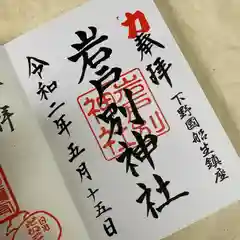 力
奉拝
下野國船生鎮座
岩戸別神社
岩戸別神社
令和二年五月十五日
拝